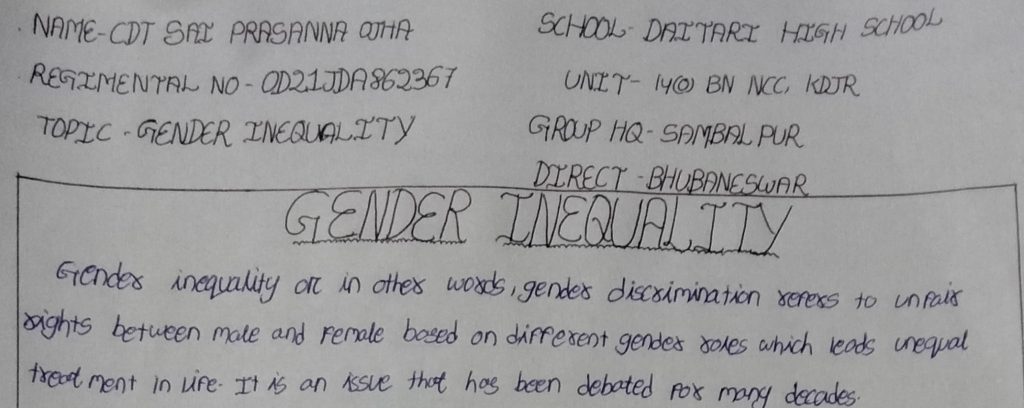 NAME-CDT SAI PRASANNA OJHA
SCHOOL- DAITARI HIGH SCHOOL
REGIMENTAL NO - OD21JDA862367
UNIT- 14(O) BN NCC, KDJR
TOPIC - GENDER INEQUALITY
GROUP HQ- SAMBALPUR
DIRECT -BHUBANESWAR
GENDER INEQUALITY
Gender inequality or in other words, gender discrimination refers to unfair
rights between male and female based on different gender roles which leads unequal
treatment in life. It is an issue that has been debated for many decades.